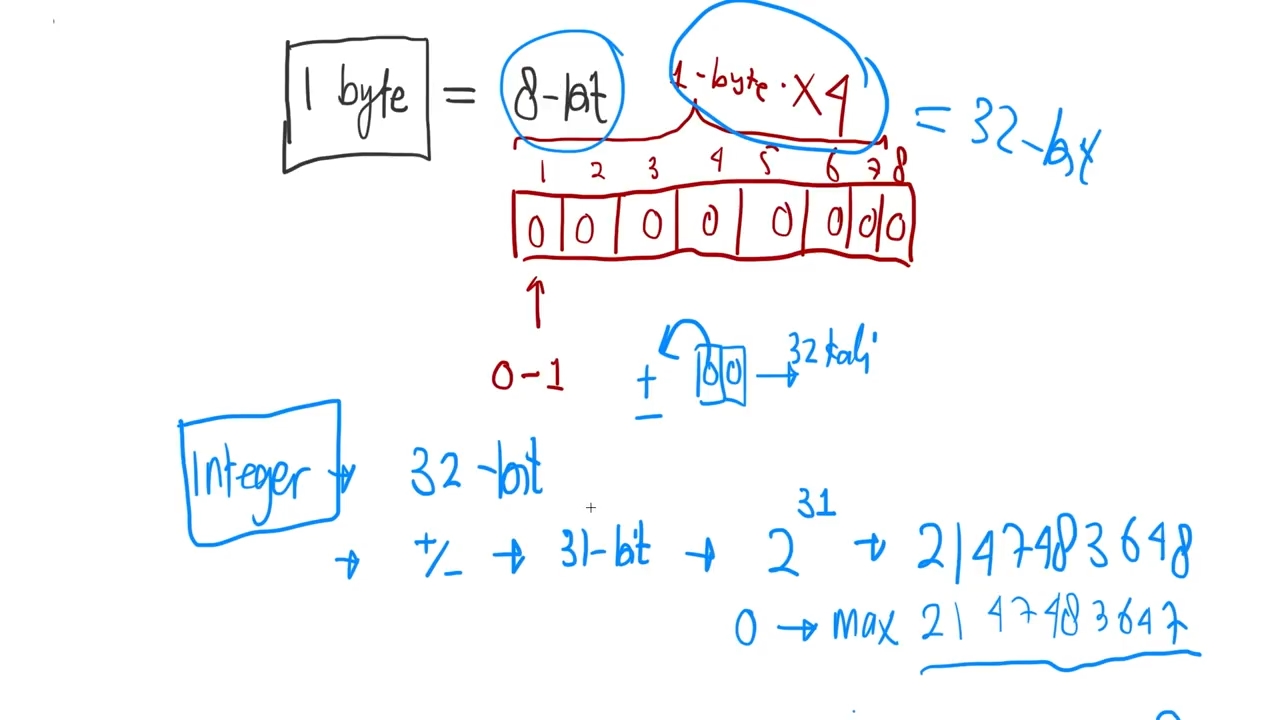 1 byte = 8-bit 1-byte. X4 = 32-bit
1 2 3 4 5 6 7 8
0 0 0 0 0 0 0 0
0-1 + 00 → 32 kali
−
Integer → 32-bit
→ +/- → 31-bit → 2^31 → 2147483648
0 → max 2147483647